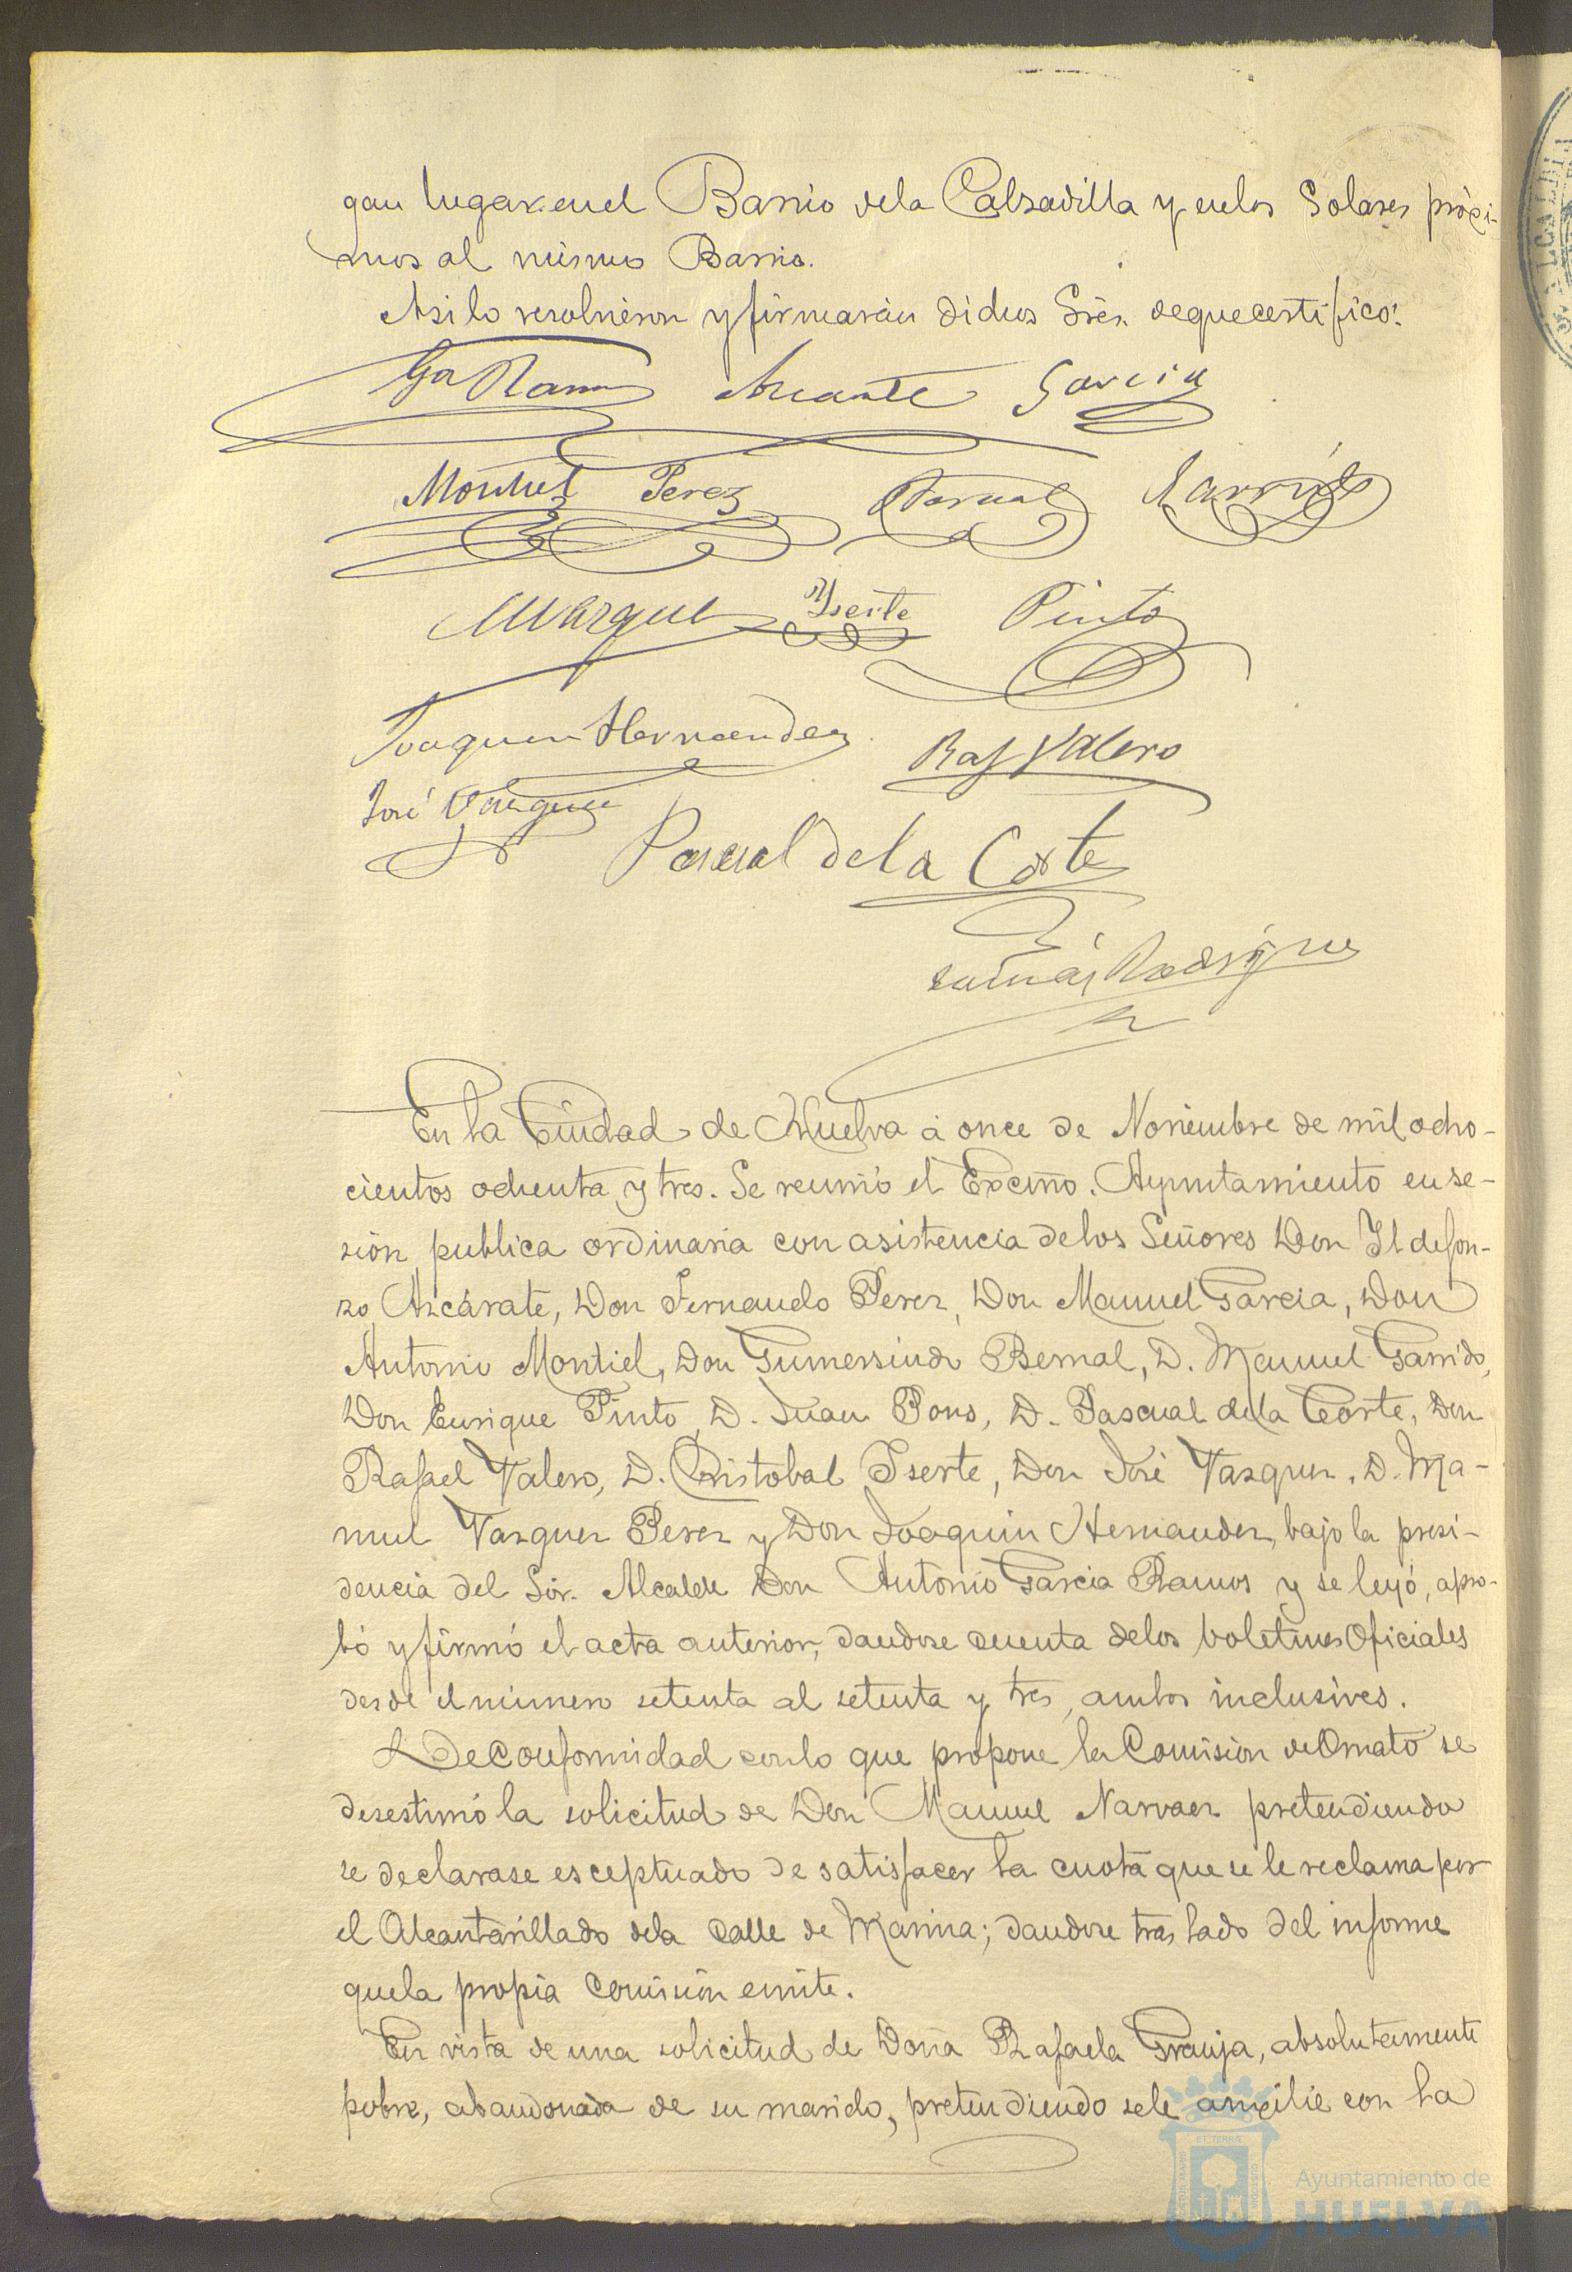 gan lugar en el Barrio dela Calzadilla y enlos Solares próxi-
mos al mismo Barrio.
Asi lo resolvieron y firmarán dichos Sres. de que certifico.
Ga Ramos Azcarate Garcia
Montiel Perez Bernal Garrido
M Vazquez Yserte Pinto
Joaquin Hernandez Raf Valero
José Vazquez
Pascual de la Corte
Tomás Rodriguez
En la Ciudad de Huelva á once de Noviembre de mil ocho-
cientos ochenta y tres. Se reunió el Excmo. Ayuntamiento en se-
sión publica ordinaria con asistencia de los Señores Don Ildefon-
zo Azcárate, Don Fernando Perez, Don Manuel Garcia, Don
Antonio Montiel, Don Gumersindo Bernal, D. Manuel Garrido,
Don Enrique Pinto, D. Juan Pons, D. Pascual de la Corte, Don
Rafael Valero, D. Cristobal Iserte, Don José Vazquez, D. Ma-
nuel Vazquez Perez y Don Joaquin Hernandez, bajo la presi-
dencia del Sór. Alcalde Don Antonio Garcia Ramos y se leyó, apro-
bó y firmó el acta anterior, dandose cuenta delos boletines Oficiales
desde el número setenta al setenta y tres, ambos inclusives.
De conformidad conlo que propone la Comision de Ornato se
desestimó la solicitud de Don Manuel Narvaez pretendiendo
se declarase esceptuado de satisfacer la cuota que se le reclama por
el Alcantarillado dela Calle de Marina; dandose traslado del informe
quela propia Comisión emite.
En vista de una solicitud de Doña Rafaela Granja, absolutamente
pobre, abandonada de su marido, pretendiendo sele auxilie con la
Ayuntamiento de
HUELVA